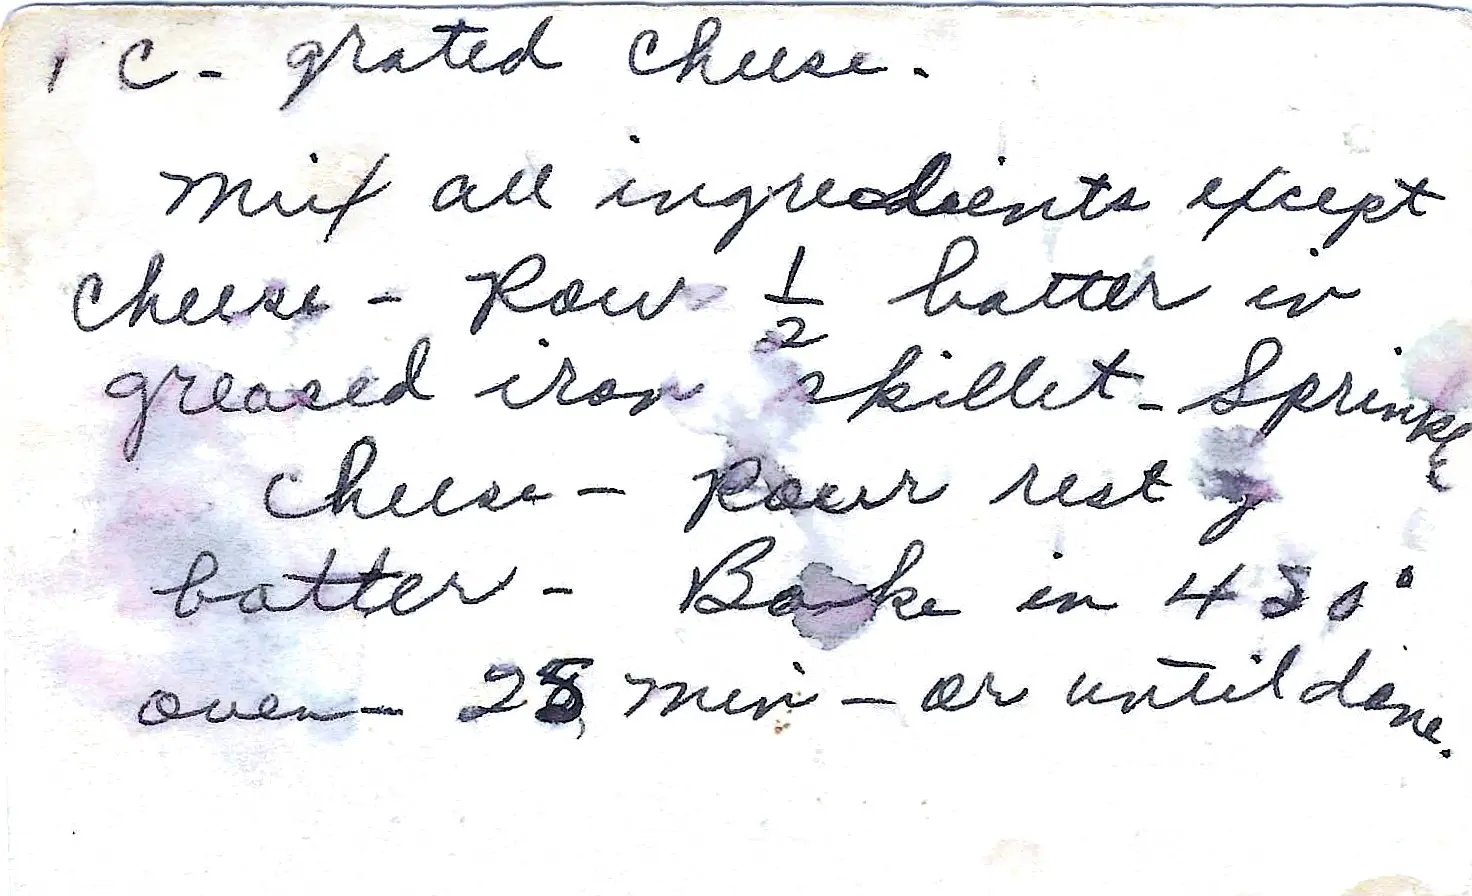 1 C - grated cheese.
Mix all ingredients except
cheese - Pour 1/2 batter in
greased iron skillet - Sprinkle
cheese - Pour rest of
batter - Bake in 450°
oven - 25 min - or until done.